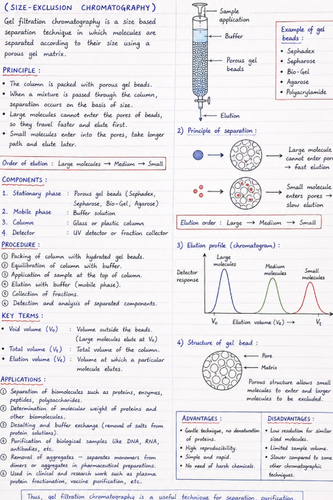 (SIZE-EXCLUSION CHROMATOGRAPHY)
Gel filtration chromatography is a size based
separation technique in which molecules are
separated according to their size using a
porous gel matrix.
PRINCIPLE :
• The column is packed with porous gel beads.
• When a mixture is passed through the column,
separation occurs on the basis of size.
• Large molecules cannot enter the pores of beads,
so they travel faster and elute first.
• Small molecules enter into the pores, take longer
path and elute later.
Order of elution : Large molecules → Medium → Small
COMPONENTS :
1. Stationary phase : Porous gel beads (Sephadex,
Sepharose, Bio-Gel, Agarose)
2. Mobile phase : Buffer solution
3. Column : Glass or plastic column
4. Detector : UV detector or fraction collector
PROCEDURE :
① Packing of column with hydrated gel beads.
② Equilibration of column with buffer.
③ Application of sample at the top of column.
④ Elution with buffer (mobile phase).
⑤ Collection of fractions.
⑥ Detection and analysis of separated components.
KEY TERMS :
• Void volume (V₀) : Volume outside the beads.
(Large molecules elute at V₀)
• Total volume (Vₜ) : Total volume of the column.
• Elution volume (Vₑ) : Volume at which a particular
molecule elutes.
APPLICATIONS :
① Separation of biomolecules such as proteins, enzymes,
peptides, polysaccharides.
② Determination of molecular weight of proteins and
other biomolecules.
③ Desalting and buffer exchange (removal of salts from
protein solutions).
④ Purification of biological samples like DNA, RNA,
antibodies, etc.
⑤ Removal of aggregates – separates monomers from
dimers or aggregates in pharmaceutical preparations.
⑥ Used in clinical and research work such as plasma
protein fractionation, vaccine purification, etc.
Sample
application
Buffer
Porous gel
beads
Elution
Example of gel
beads :
• Sephadex
• Sepharose
• Bio-Gel
• Agarose
• Polyacrylamide
2) Principle of separation :
Large molecule
cannot enter pores
→ fast elution
Small molecule
enters pores →
slow elution
Elution order : Large → Medium → Small
3) Elution profile (chromatogram) :
Detector
response
Large
molecules
Medium
molecules
Small
molecules
V₀
Elution volume (Vₑ) →
Vₜ
4) Structure of gel bead :
Pore
Matrix
Porous structure allows small
molecules to enter and larger
molecules to be excluded.
ADVANTAGES :
• Gentle technique, no denaturation
of proteins.
• High reproducibility.
• Simple and rapid.
• No need of harsh chemicals.
DISADVANTAGES :
• Low resolution for similar
sized molecules.
• Limited sample volume.
• Slower compared to some
other chromatographic
techniques.
Thus, gel filtration chromatography is a useful technique for separation, purification